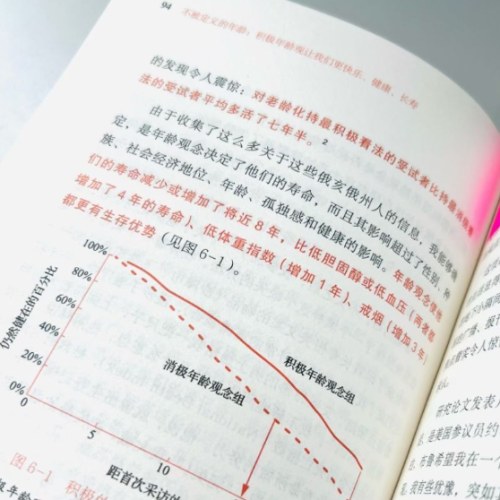 94 不被定义的年龄：积极年龄观让我们更快乐、健康、长寿
的发现令人震惊：对老龄化持最积极看法的受试者比持最消极看
法的受试者平均多活了七年半。2
由于收集了这么多关于这些俄亥俄州人的信息，我能够确
定，是年龄观念决定了他们的寿命，而且其影响超过了性别、种
族、社会经济地位、年龄、孤独感和健康的影响。年龄观念使他
们的寿命减少或增加了将近8年，比低胆固醇或低血压（两者都
增加了4年的寿命）、低体重指数（增加1年）、戒烟（增加3年）
都更有生存优势（见图6-1）。
100%
80%
60%
40%
20%
0%
仍然健在的百分比
积极年龄观念组
消极年龄观念组
0
5
10
距首次采访的
图6-1 积极的
研究论文发表
是美国参议员约
布鲁希望我在一
我有些犹像，突如